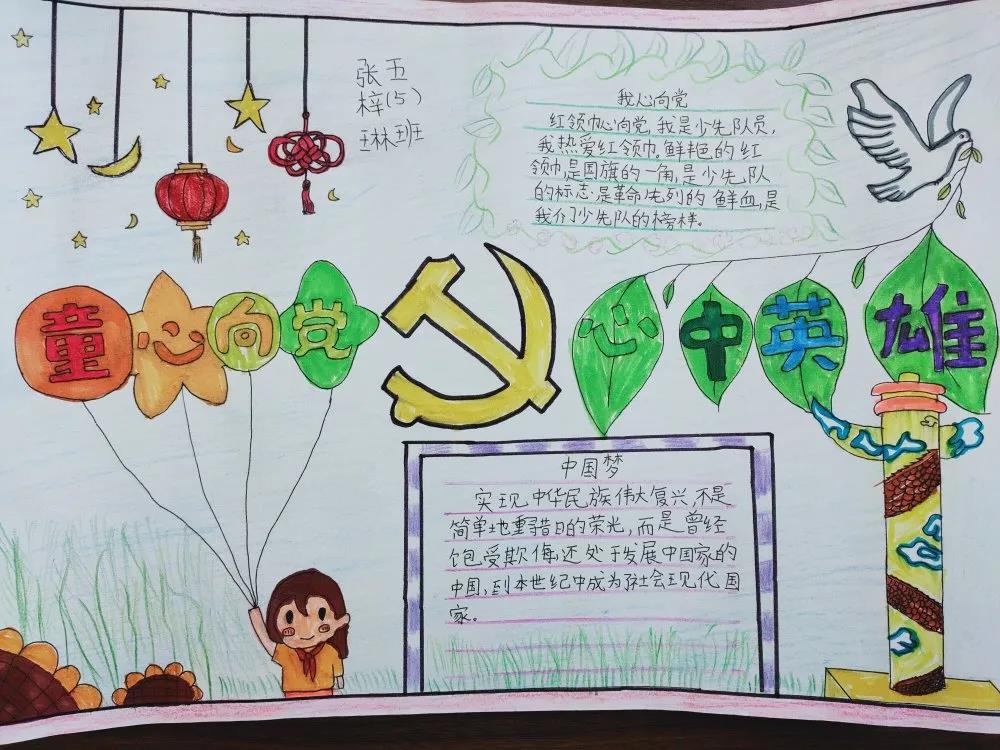 张梓琳
五(5)班
我心向党
红领巾心向党,我是少先队员,
我热爱红领巾。鲜艳的红
领巾,是国旗的一角,是少先队
的标志,是革命先列的鲜血,是
我们少先队的榜样。
童心向党
心中英雄
中国梦
实现中华民族伟大复兴,不是
简单地重寻昔日的荣光,而是曾经
饱受欺侮还处于发展中国家的
中国,到本世纪中成为社会现代国
家。